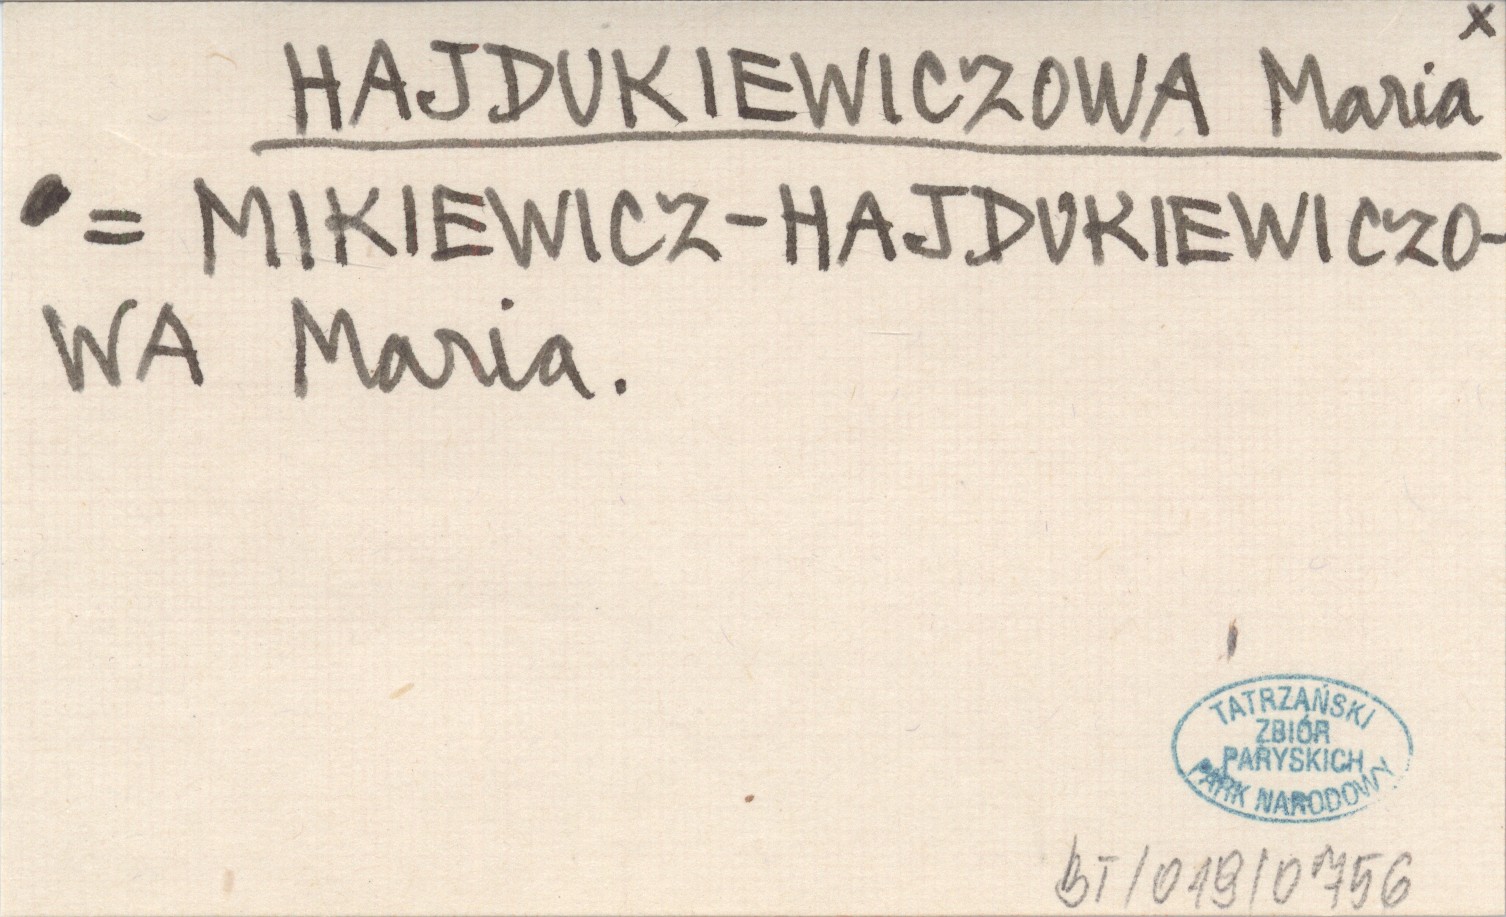 x
HAJDUKIEWICZOWA Maria
= MIKIEWICZ-HAJDUKIEWICZO-
WA Maria.
TATRZAŃSKI
ZBIÓR
PARYSKICH
PARK NARODOWY
BT/019/0756